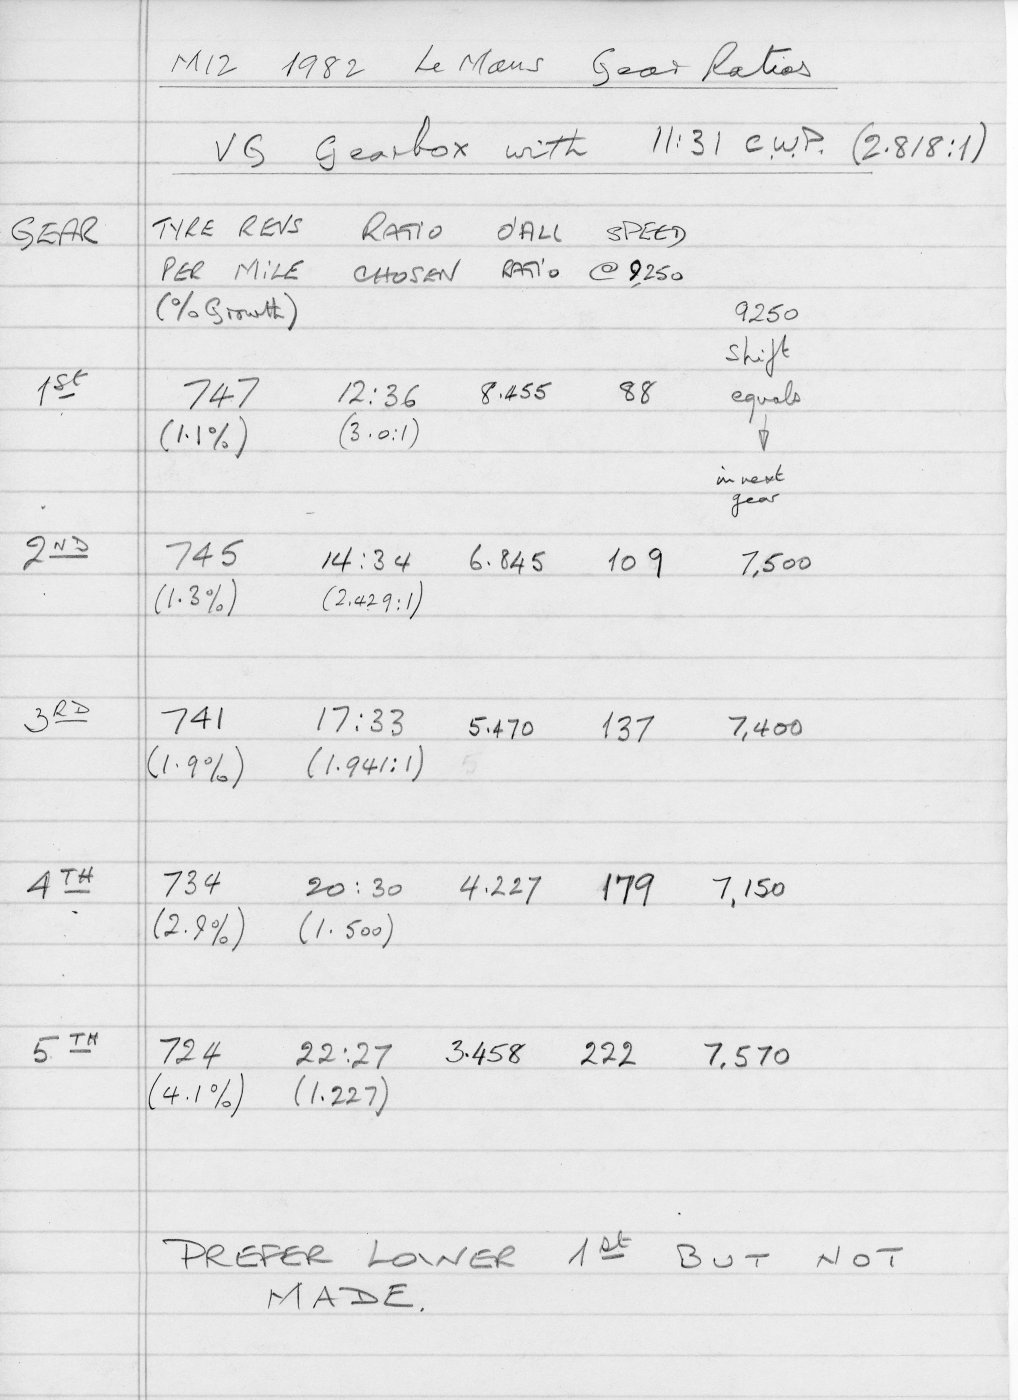 M12 1982 Le Mans Gear Ratios
VG Gearbox with 11:31 C.W.P. (2.818:1)
GEAR TYRE REVS RATIO O'ALL SPEED
PER MILE CHOSEN RATIO @ 9250
(% Growth) 9250
shift
1st 747 12:36 8.455 88 equals
(1.1%) (3.0:1)
in next
gear
2ND 745 14:34 6.845 109 7,500
(1.3%) (2.429:1)
3RD 741 17:33 5.470 137 7,400
(1.9%) (1.941:1)
4TH 734 20:30 4.227 179 7,150
(2.9%) (1.500)
5TH 724 22:27 3.458 222 7,570
(4.1%) (1.227)
PREFER LOWER 1st BUT NOT
MADE.